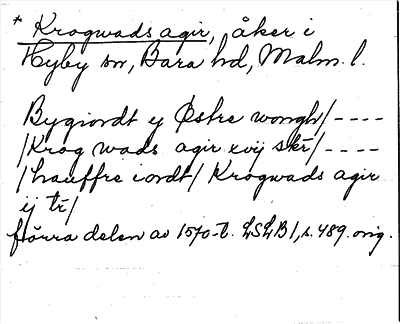 * Krogwads agir, åker i
Hyby sn, Bara hd, Malm. l.
Bygiordt ij Østre wongh/----
/Krog wads agir xvij skr/----
/hauffre iordt/ Krogwads agir
ij tr/
förra delen av 1570-t. LSLB 1, s. 489. orig.